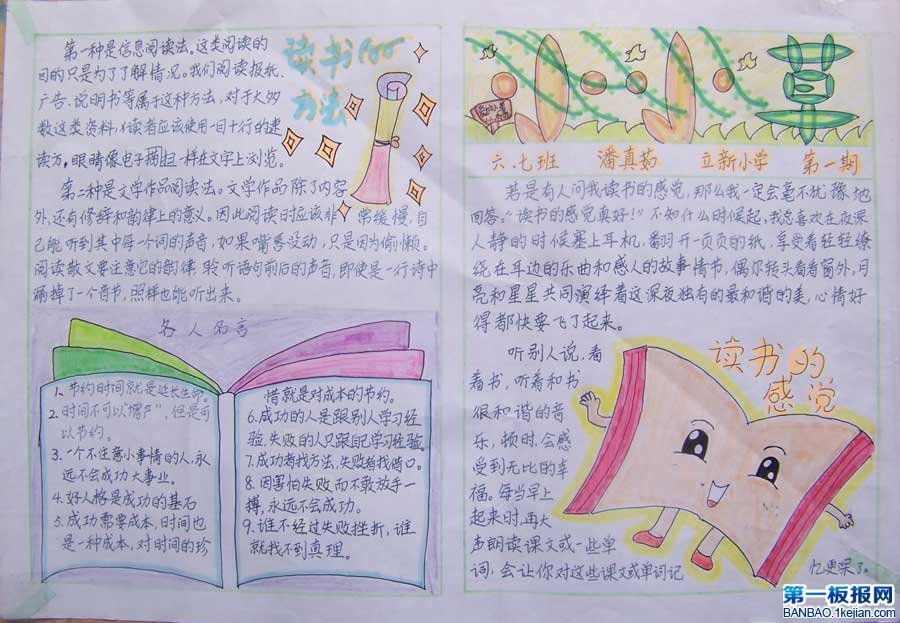 第一种是信息阅读法。这类阅读的
目的只是为了了解情况。我们阅读报纸、
广告、说明书等属于这种方法，对于大多
数这类资料，读者应该使用一目十行的速
读方，眼睛像电子扫一样在文字上浏览。
第二种是文学作品阅读法。文学作品除了内容
外，还有修辞和韵律上的意义。因此阅读时应该非常缓慢，自
己能听到其中每个词的声音，如果嘴唇没动，只是因为偷懒。
阅读散文要注意它的韵律，聆听语句前后的声音，即使是一行诗中
漏掉了一个音节，照样也能听出来。
读书的
方法
名人名言
1、节约时间就是延长生命。
2、时间不可以增产，但是可
以节约。
3、一个不注意小事情的人，永
远不会成功大事业。
4、好人格是成功的基石
5、成功需要成本，时间也
是一种成本，对时间的珍
惜就是对成本的节约。
6、成功的人是跟别人学习经
验，失败的人只跟自己学习经验
7、成功者找方法，失败者找借口。
8、因害怕失败而不敢放手一
搏，永远不会成功。
9、谁不经过失败挫折，谁
就找不到真理。
六.七班 潘真茹 立新小学 第一期
若是有人问我读书的感觉，那么我一定会毫不犹豫地
回答：“读书的感觉真好！”不知什么时候起，我总喜欢在夜深
人静的时候塞上耳机，翻开一页页的纸，享受着轻轻缭
绕在耳边的乐曲和感人的故事情节，偶尔转头看看窗外，月
亮和星星共同演绎着这深夜独有的最和谐的美，心情好
得都快要飞了起来。
读书的
感觉
听别人说，看
着书，听着和书
很和谐的音
乐，顿时会感
受到无比的幸
福。每当早上
起来时，再大
声朗读课文或一些单
词，会让你对这些课文或单词记
忆更深了。
第一板报网
BANBAO.1kejian.com